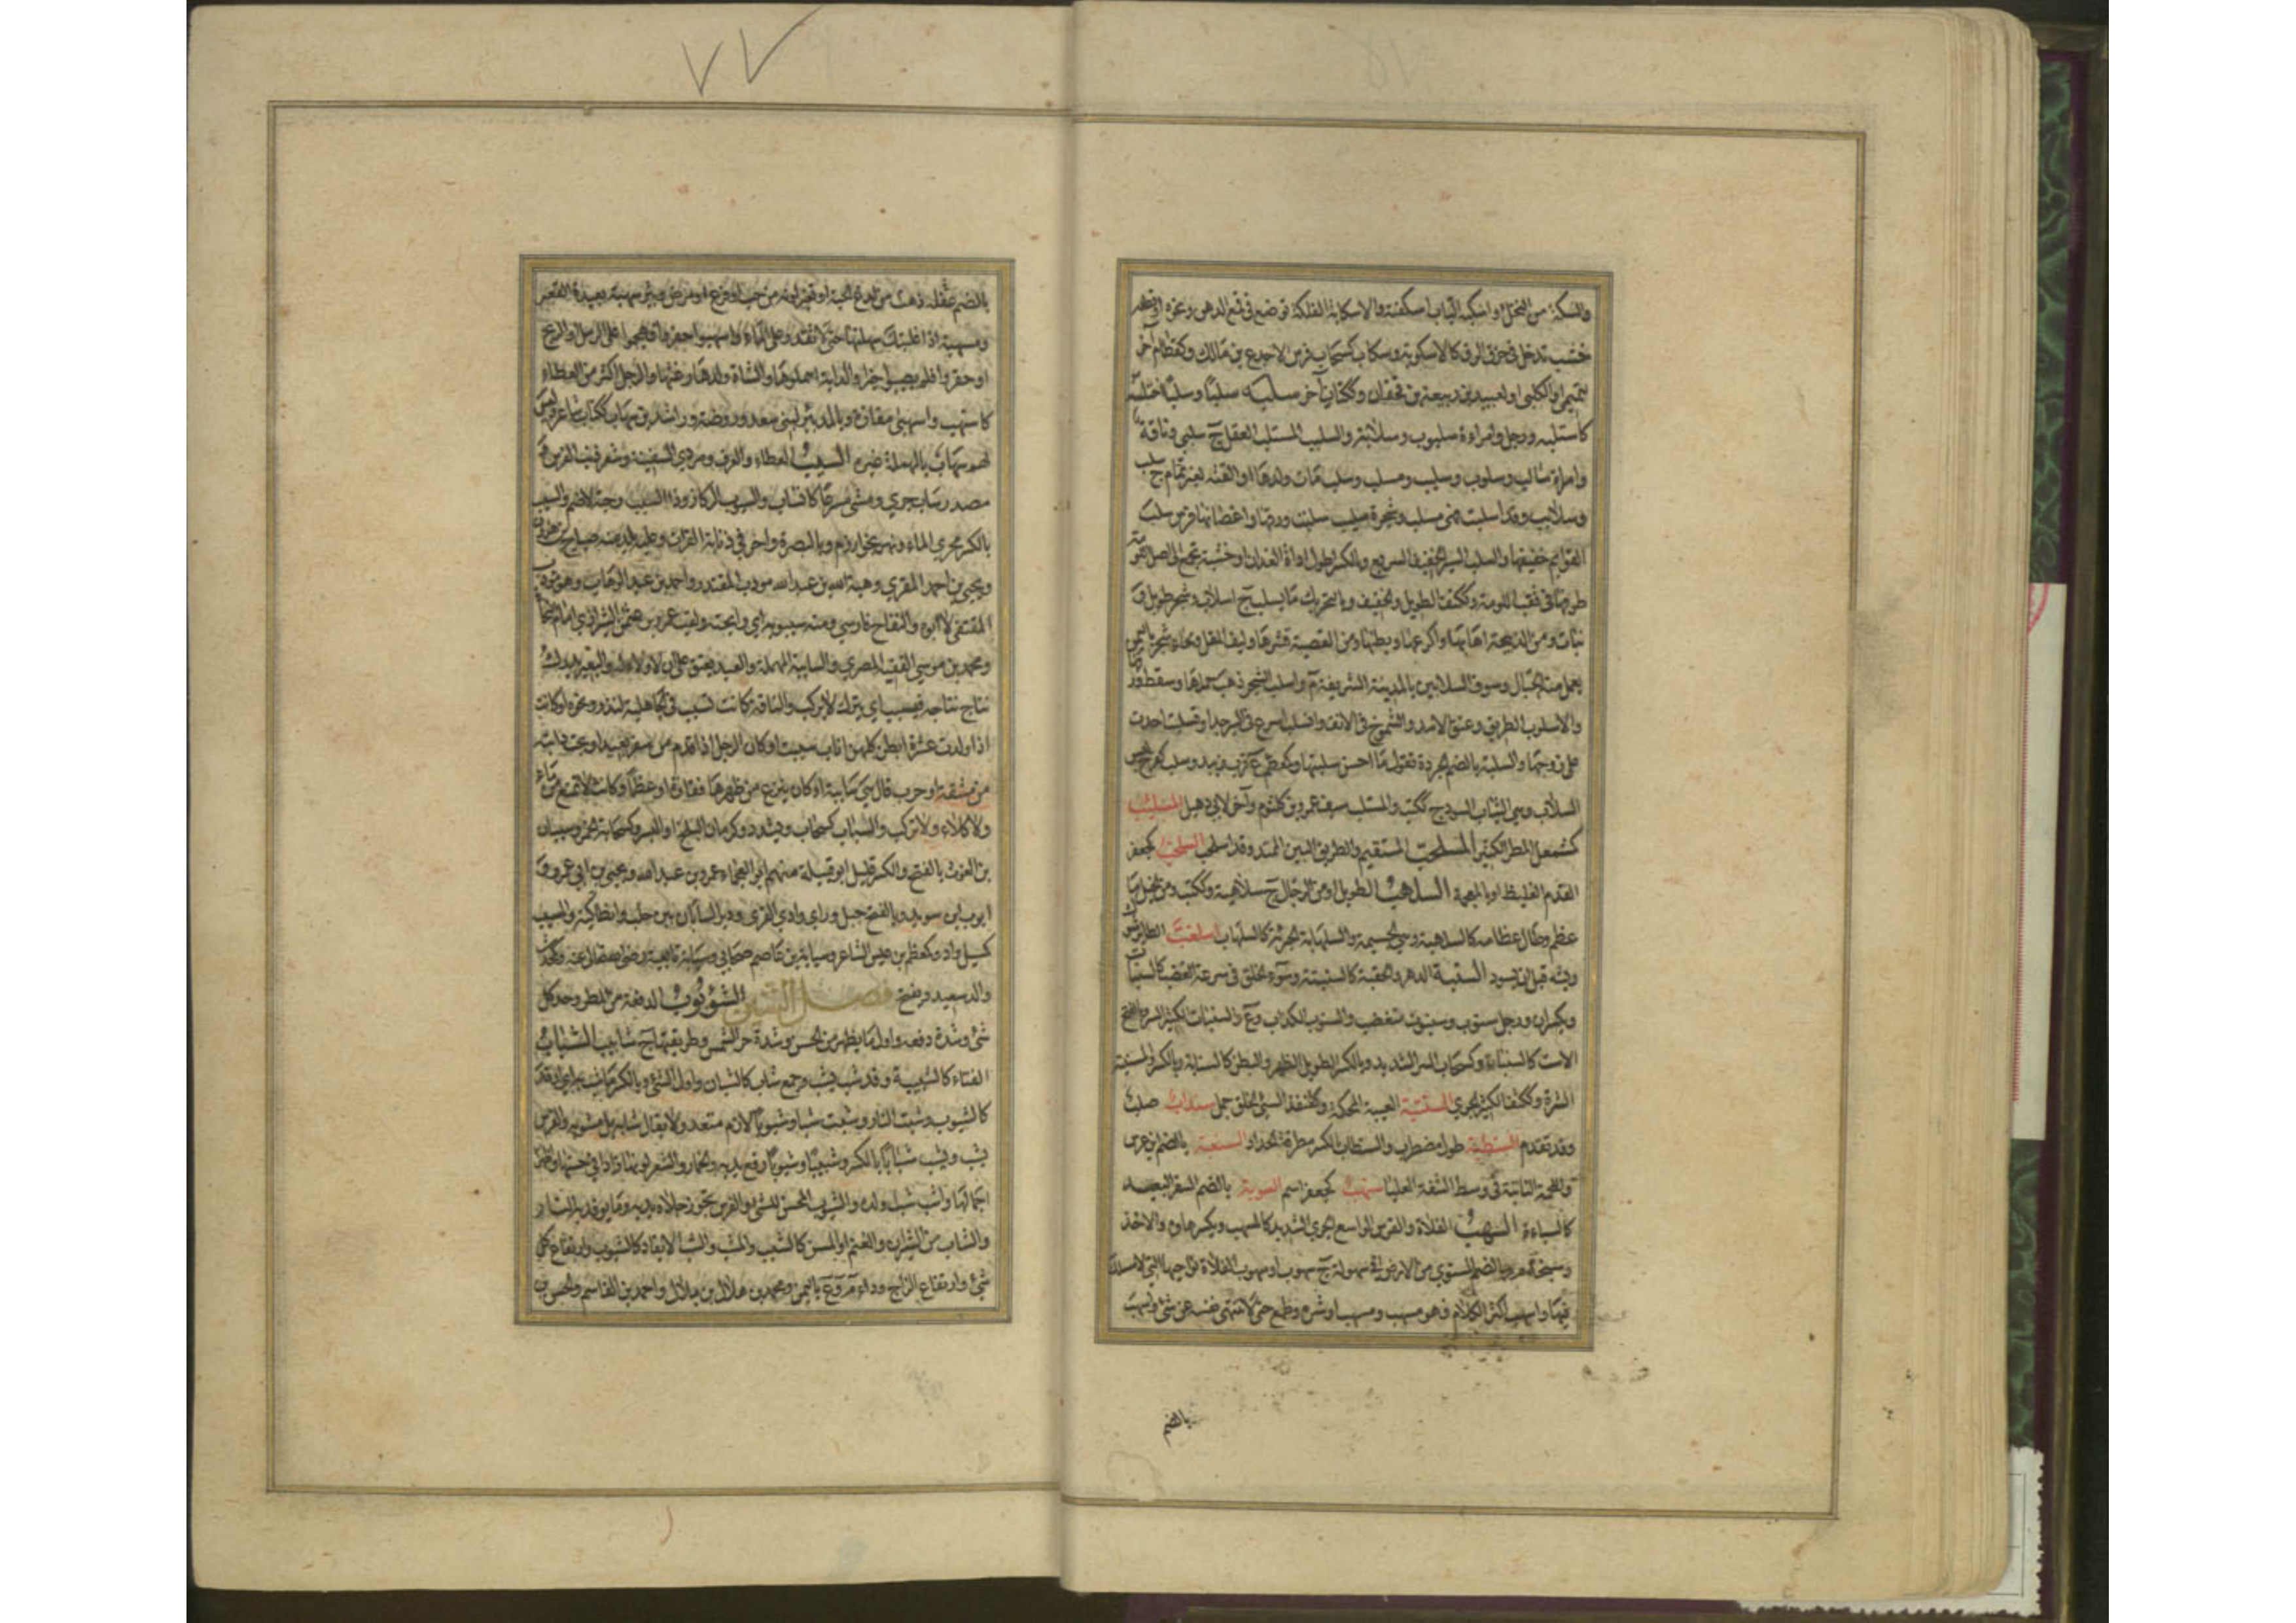 والسكبة من النخل واسكبة الباب اسكفته والاسكابة الفلكة توضع في قمع الدهن ونحوه او قطعة
خشب تدخل في خرق الزق كالاسكوبة وسكاب كسحاب فرس الاجدع بن مالك وكقطام آخر
لتميمي او لكلبي او لعبيدة بن ربيعة بن قحفان وككتان آخر سلبه سلبا وسلبا اختلسه
كاستلبه ورجل وامراءة سلبوب وسلابة والسليب المستلب العقل ج سلبى وناقة
وامراة سالب وسلوب وسليب ومسلب وسلب مات ولدها او القته لغير تمام ج سلب
وسلائب وقد اسلبت فهي مسلب وشجرة سليب سلبت ورقها واغصانها وفرس سلب
القوائم خفيفها والسلب السير الخفيف السريع وبالكسر اطول اداة الفدان او خشبة تجمع الى اصل اللومة
طرفها في ثقب اللومة وككتف الطويل والخفيف وبالتحريك ما يسلب ج اسلاب وشجر طويل و
نبات ومن الذبيحة اهابها واكرعها وبطنها ومن القصبة قشرها وليف المقل ولحاء شجر باليمن
يعمل منه الحبال وسوق السلابين بالمدينة الشريفة م واسلب الشجر ذهب حملها وسقط ورقها
والاسلوب الطريق وعنق الاسد والشموخ في الانف وانسلب اسرع في السير جدا وتسلبت احدت
على زوجها والسلبة بالضم الجردة تقول ما احسن سلبتها وكمعظم ع قرب زبيد وسلب كفرح لبس
السلاب وهي الثياب السود ج ككتب والمستلب سيف عمرو بن كلثوم وآخر لابي دهبل المسلئب
كمشمعل المطر الكثير المسلحب المستقيم والطريق البين الممتد وقد اسلحب السلخب كجعفر
الفدم الغليظ او بالمعجمة السلهب الطويل او من الرجال ج سلاهبة وككتب ومن الخيل ما
عظم وطال عظامه كالسلهبة وهي الجسيمة والسلهابة الجرئة كالسلهاب اسلغب الطائر شوك
ريشه قبل ان يسود السنبة الدهر والحقبة كالسنبتة وسوء الخلق في سرعة الغضب كالسنبات
ويكسران ورجل سنوب وسنبوت متغضب والسنوب الكذاب و ع والسنبات الكثير الشر وبالفتح
الاست كالسنباء وكسحاب الشر الشديد وبالكسر الطويل الظهر والبطن كالسنابة وبالكسر والمسنبة
الشرة وككتف الكثير الجري السنتبة الغيبة المحكمة وكقنفذ السيئ الخلق جمل سنداب صلب
وقد تقدم السنطبة طول مضطرب والسنطاب بالكسر مطرقة الحداد السنعبة بالضم ابن عرس
واللحمة الناتئة في وسط الشفة العليا سنهب كجعفر اسم السوبة بالضم السفر البعيد
كالسباءة السهب الفلاة والفرس الواسع الجري الشديد كالمسهب ويكسر هاؤه والاخذ
وسبخة م وبالضم المستوي من الارض في سهولة ج سهوب او سهوب الفلاة نواحيها التي لا مسلك
فيها واسهب اكثر الكلام فهو مسهب ومسهب او شره وطمع حتى لا تنتهي نفسه عن شئ واسهب
بالضم
٧٧
بالضم عقله ذهب من لدغ الحية او تغير لونه من حب او فزع او مرض وبئر سهبة بعيدة القعر
ومسهبة اذا غلبتك سهبتها حتى لا تقدر على الماء واسهبوا حفروا فهجموا على الرمل او الريح
او حفروا فلم يصيبوا خيرا والدابة اهملوها والشاة ولدها رغثها والرجل اكثر من العطاء
كاستهب واسهبي مفازة وبالمد بئر لبني سعد وروضة وراشد بن سهاب ككتاب شاعر وليس
لهم سهاب بالمهملة غيره السيب العطاء والعرف ومردي السفينة وشعر ذنب الفرس و
مصدر ساب جرى ومشى مسرعا كانساب والسيوب الركاز وذات السيب رحبة لاضم والسيب
بالكسر مجرى الماء ونهر بخوارزم وبالبصرة وآخر في ذنابة الفرات وعليه بلد منه صباح بن هارون
ويحيى بن احمد المقري وهبة الله بن عبد الله مؤدب المقتدر واحمد بن عبد الوهاب وهو مؤدب
المقتفي لا ابوه والتفاح فارسي ومنه سيبويه اي رائحته ولقب عمرو بن عثمن الشيرازي امام النحاة
ومحمد بن موسى الفقيه المصري والسايبة المهملة والعبد يعتق على ان لا ولاء له والبعير يدرك
نتاج نتاجه فيسيب اي يترك لا يركب والناقة كانت تسيب في الجاهلية لنذر ونحوه او كانت
اذا ولدت عشرة ابطن كلهن اناث سيبت او كان الرجل اذا قدم من سفر بعيد او نجت دابته
من مشقة او حرب قال هي سايبة او كان ينزع من ظهرها فقارة او عظما وكانت لا تمنع من ماء
ولا كلاء ولا تركب والسياب كسحاب ويشدد وكرمان البلح او البسر وكسحابة الخمر وسيبان
بن الغوث بالفتح والكسر قليل ابو قبيلة منهم ابو العجماء عمرو بن عبد الله ويحيى بن ابي عمرو و
ايوب بن سويد وبالفتح جبل وراء وادي القرى ودير السابان بين حلب وانطاكية والمسيب
كمسيل واد وكمعظم بن علس الشاعر وسيابة بن عاصم صحابي وسيابة تابعية رضى الله تعالى عنه وكمحدث
والد سعيد ويفتح فصل الشين الشؤبوب الدفعة من المطر وحد كل
شئ وشدة دفعه واول ما يظهر من الحسن وشدة حر الشمس وطريقتها ج شابيب الشباب
الفتاء كالشبيبة وقد شب يشب وجمع شاب كالشبان واول الشئ وبالكسر ما شب به اي اوقد
كالشبوب وشبت النار وشبت شبا وشبوبا لازم متعد ولا يقال شابة بل مشبوبة والفرس
يشب ويشب شبابا بالكسر وشبيبا وشبوبا رفع يديه والخمار والشعر لونها زادا في حسنها واظهرا
جمالها واشب شب ولده والشبوب المحسن للشئ والفرس تجوز رجلاه يديه وما يوقد به النار
والشاب من الثيران والغنم او المسن كالشبب والمشب والشب الايقاد كالشبوب وارتفاع كل
شئ وارتفاع الزاج وداء م و ع باليمن ومحمد بن هلال بن بلال واحمد بن القاسم والحسن بن